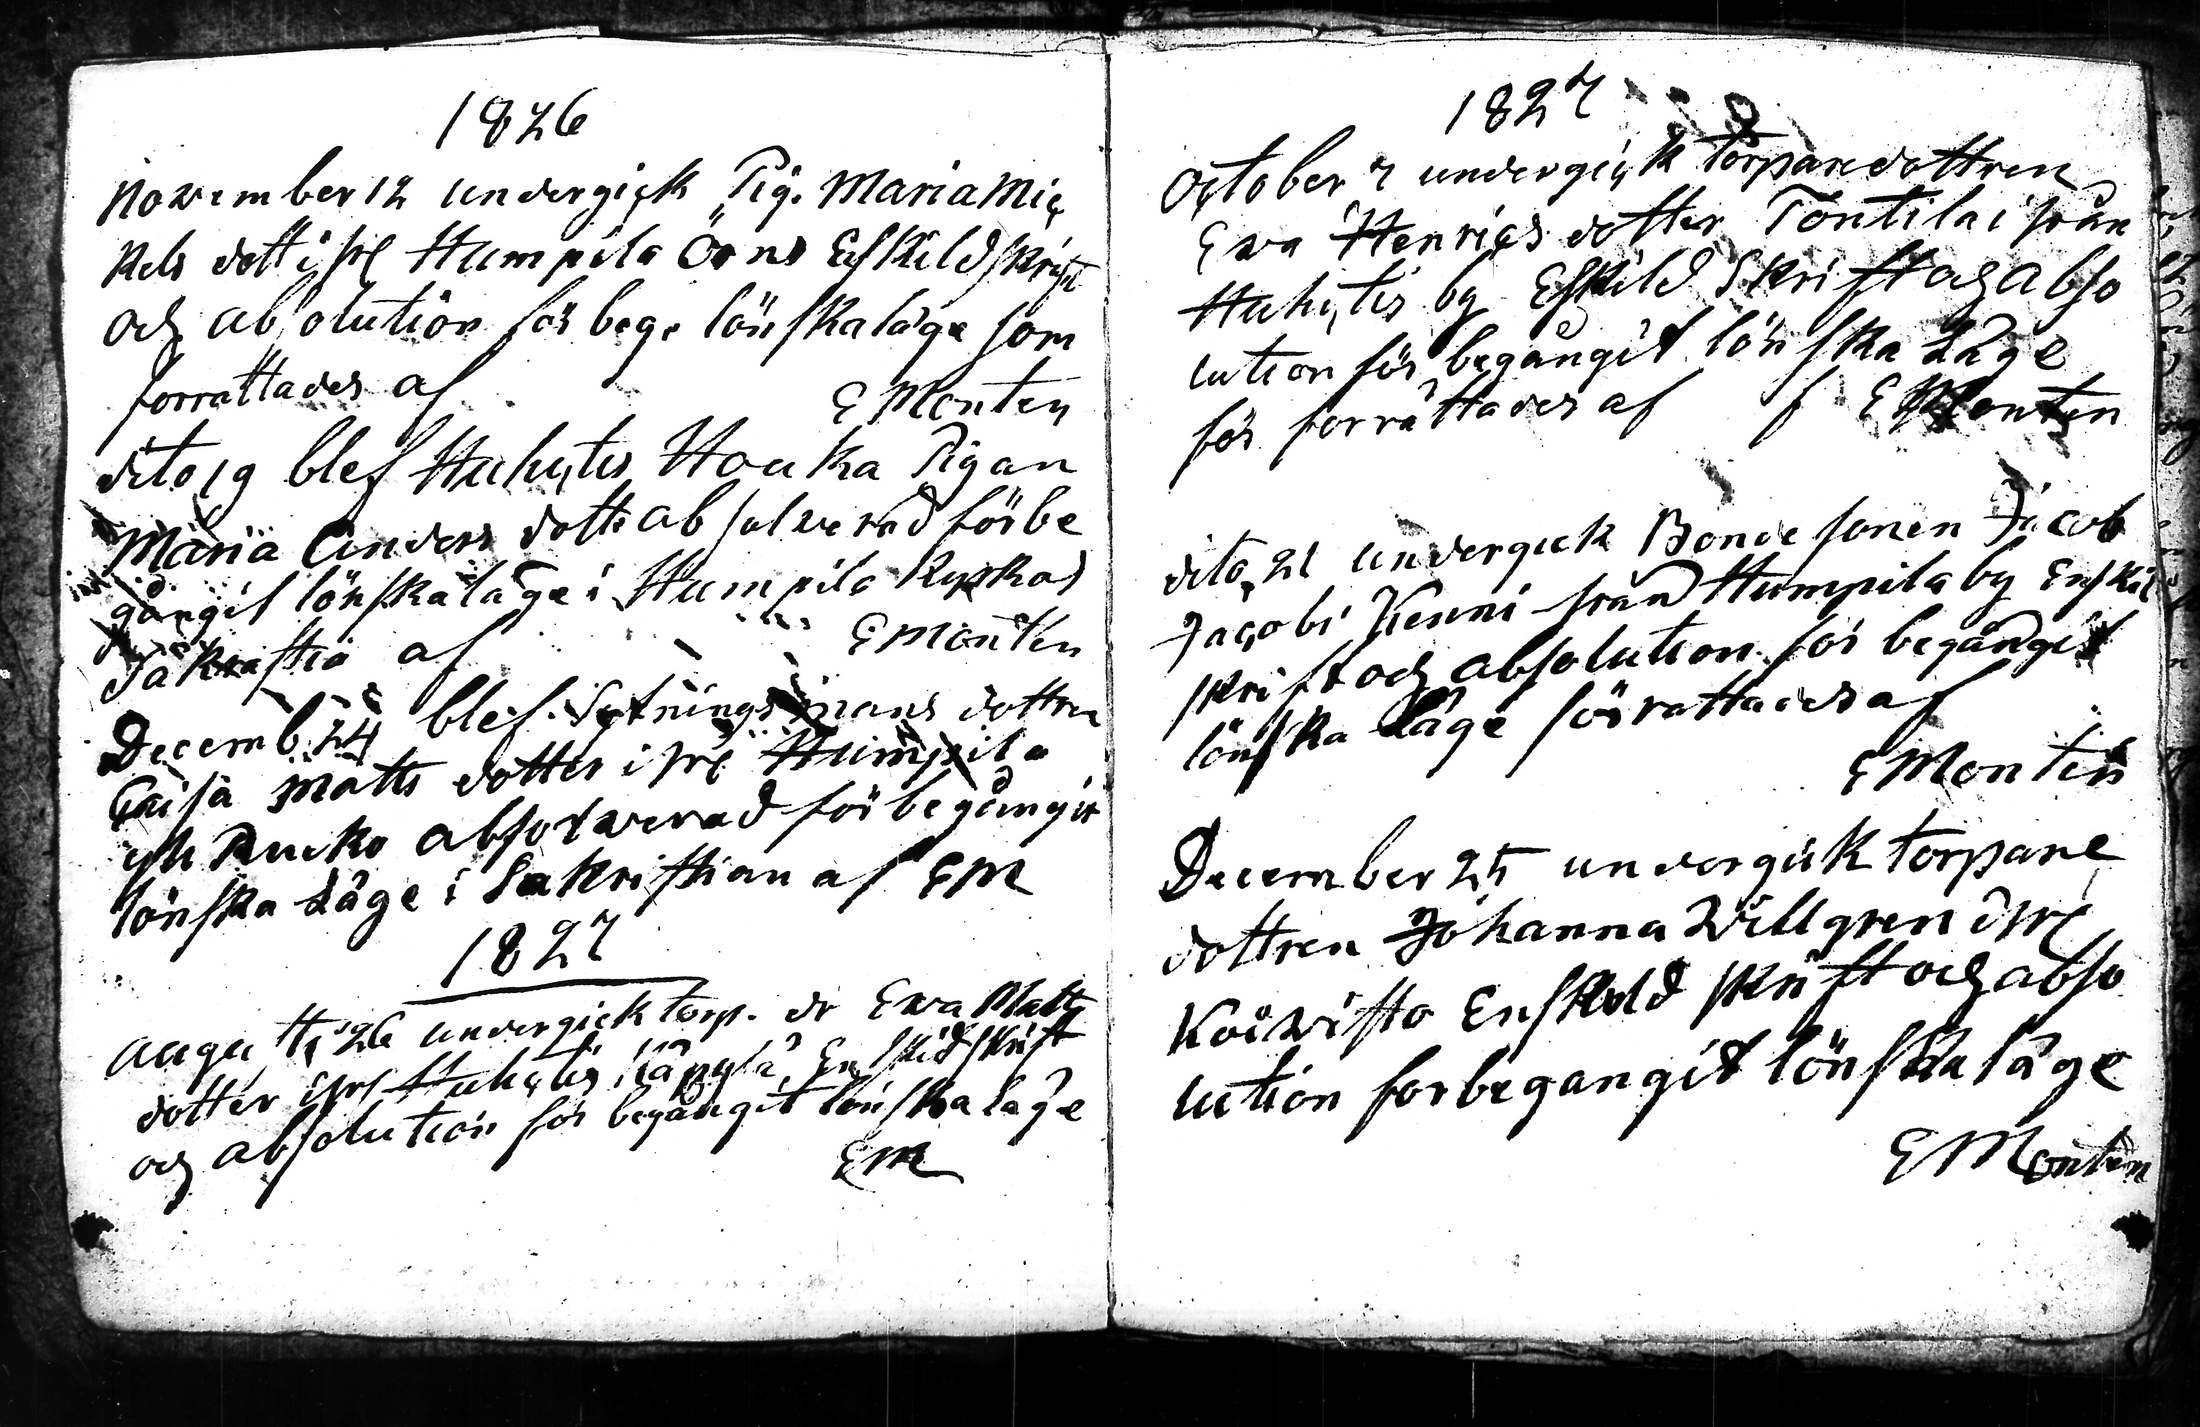 1826
November 12 undergick Pig. Maria Mic
kels dott i fr Humpila Örns Enskild skrift
och absolution för beg. lönskaläge som
forrattades af E Monten
dito 19 blef Huhtis Houka Pigan
Maria Anders dottr absolverad för be
gångit lönskaläge i Humpila Kyrkas
Sakristia af E Monten
Decemb. 24 blef Sytningsmans dottren
Caisa Matts dotter ifr Humpila
absolwerad för begångit
lönska Läge i Sakristian af EM
1827
Augusti 26 undergick torp. dr Ewa Matts
dotter ifr Huhtis Enskild skrift
och absolution för begångit lönskaläge
EM
1827
October 7 undergick Torparedottren
Ewa Henrics dotter Tontila ifrån
Huhtis by Eskild Skrift och abso
lution för begångit lönska Läge
för forrättades af E Monten
dito 21 undergick Bonde sonen Jacob
Jacobi Kenni från Humpila by Enskil
skrift och absolution för begångit
lönska läge förrattades af
E Monten
December 25 undergick torpare
dottren Johanna Willgren ifr
Koiwisto Enskild skrift och abso
lution for begangit lönska läge
E Monten